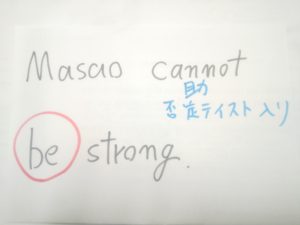 Masao cannot
助
否定テイスト入り
be strong.